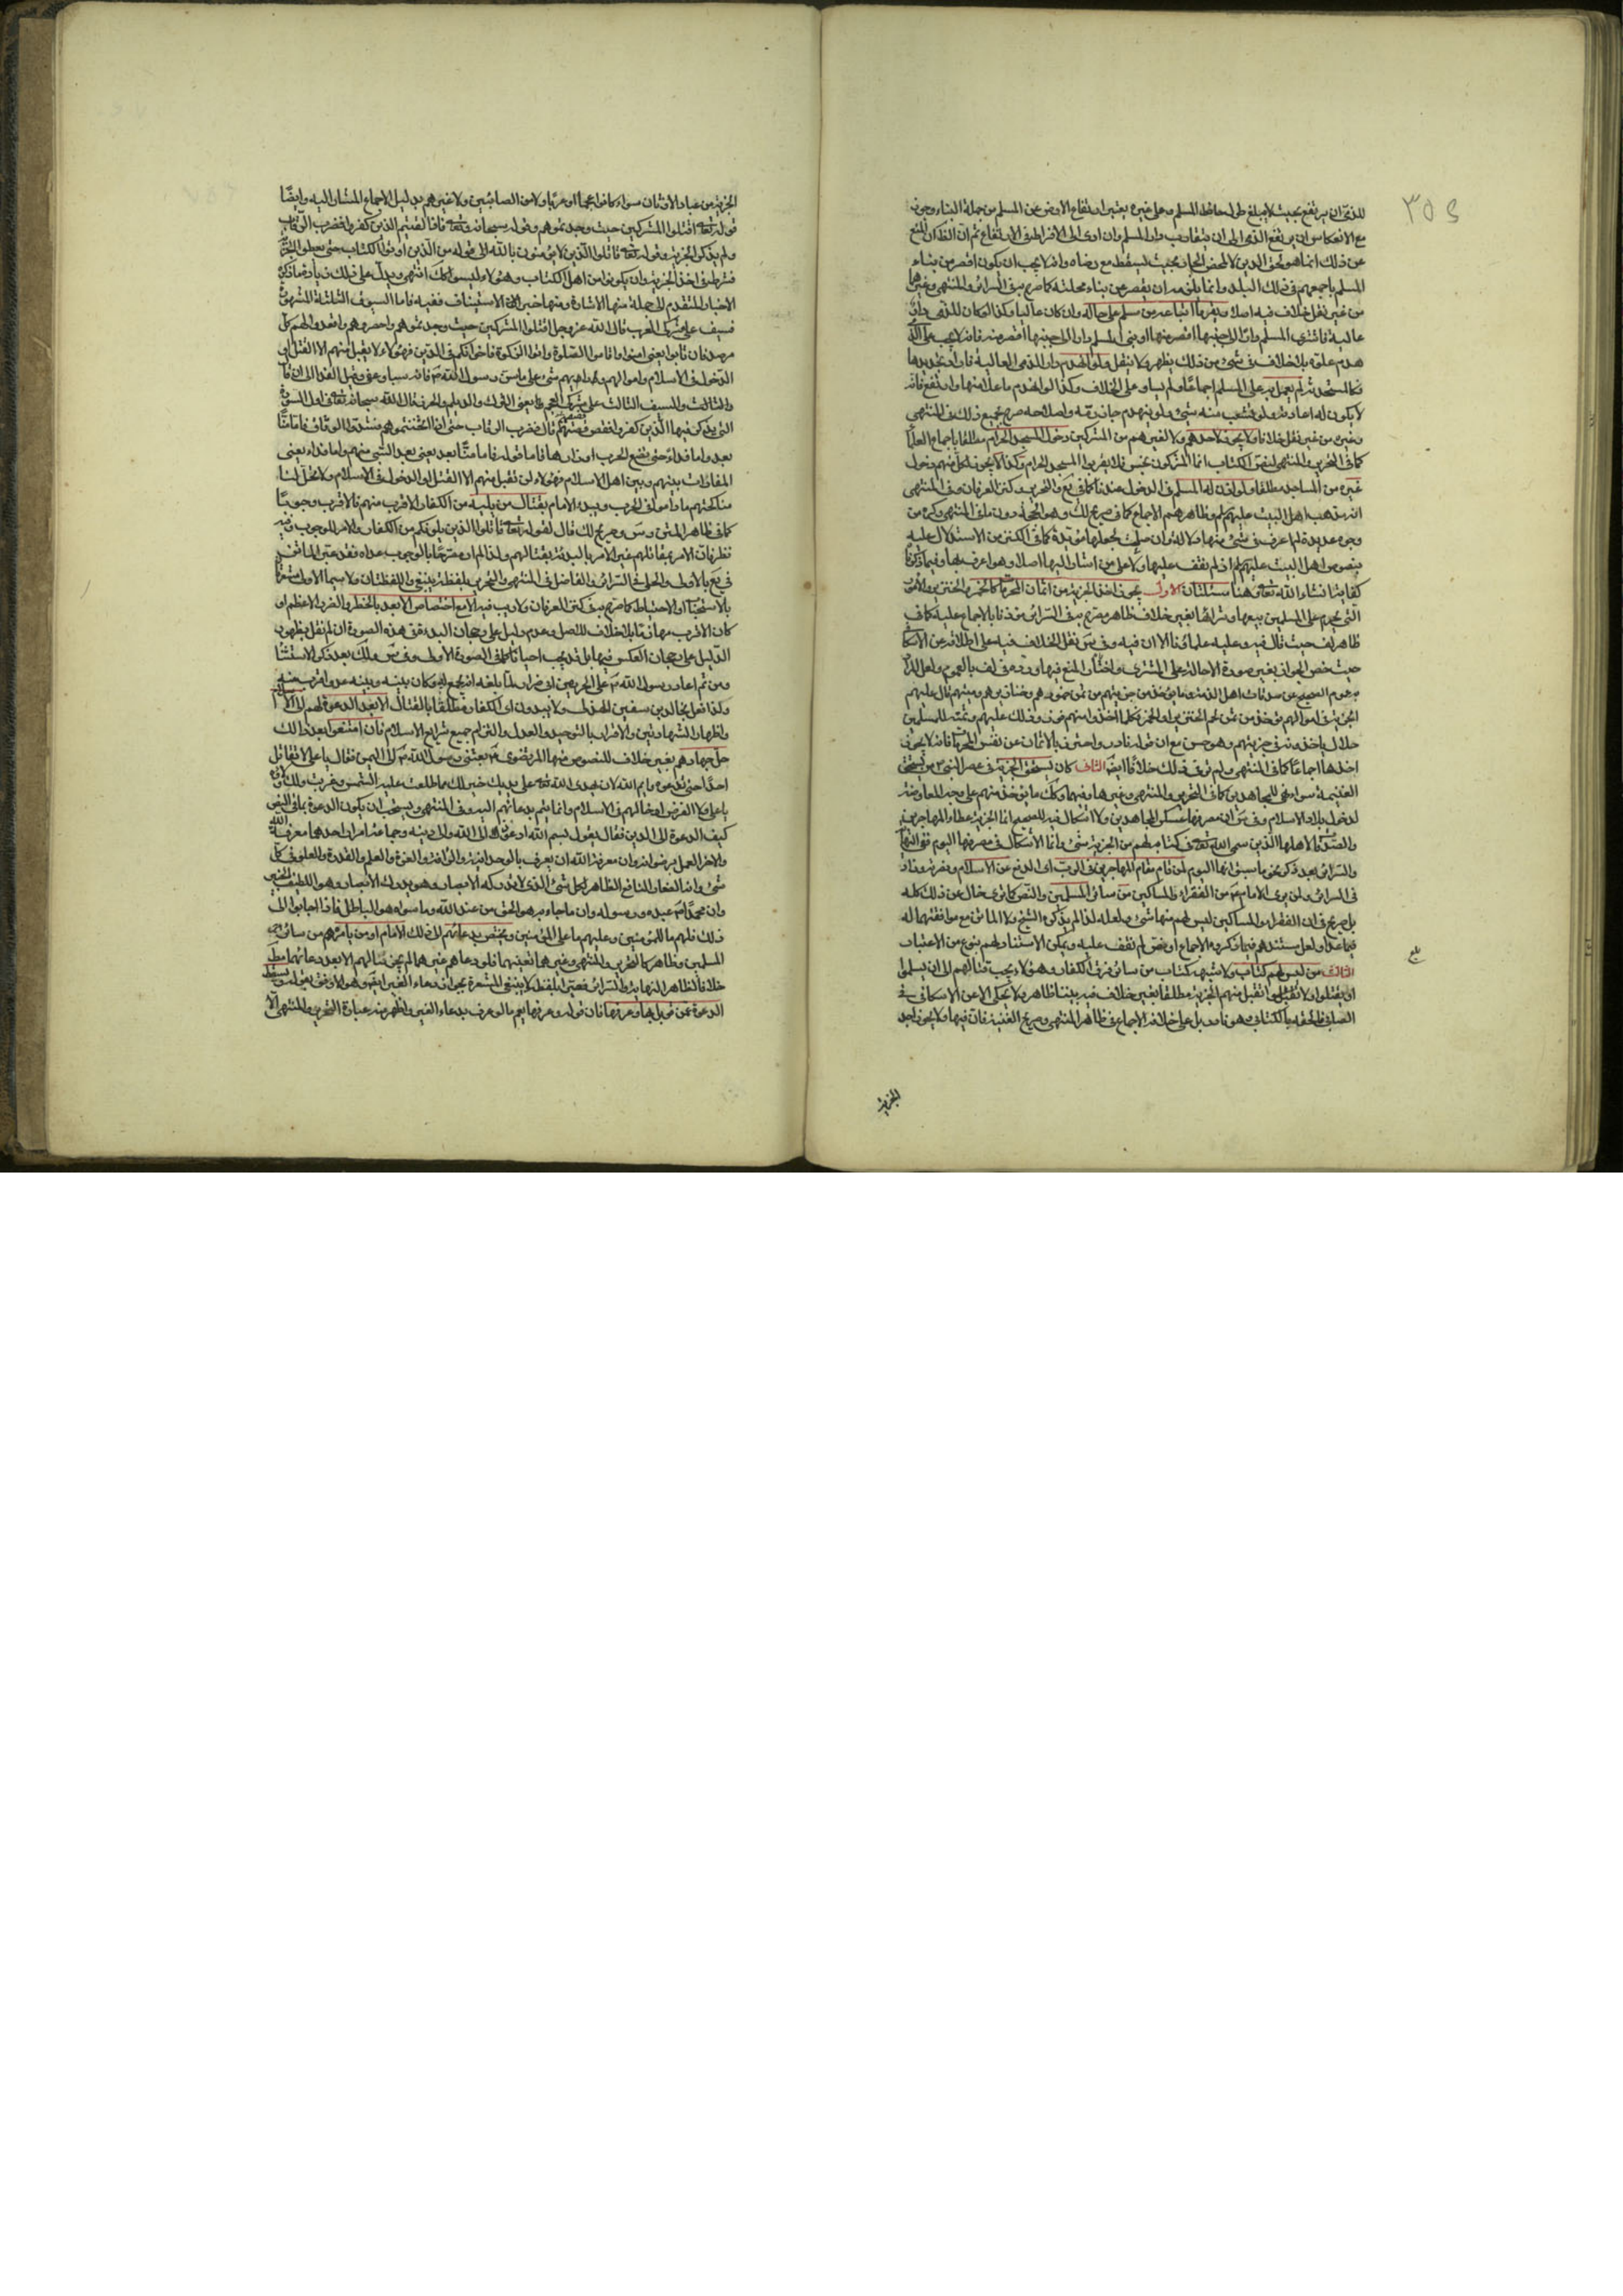 ٣٥٤
للذمى ان يرتفع بحيث لا يبلغ طول حائط المسلم وعلى غيره يتعين ارتفاع الارض عن المسلم من جملة البناء وجوز
مع الانعكاس ان يرتفع الذمى الى ان يتقارب دار المسلم وان ادى الى الافراط فى الارتفاع ثم ان الظ كان المنع
عن ذلك انما هو لحق الدين لا لمحض الجار بحيث يسقط مع رضاه وانه لا يجب ان يكون اقصر من بناء
المسلم باجمعهم فى ذلك البلد وانما يلزمه ان يقصر عن بناء محلته كما صرح به فى السرائر والمنتهى وغيرهما
من غير نقل خلاف فيه اصلا ويقر ما ابتاعه من مسلم على حاله وان كان عاليا وكذا لو كان للذمى دار
عالية فاشترى المسلم دارا الى جنبها اقصر منها او بنى المسلم دارا الى جنبها اقصر منه فانه لا يجب على الذمى
هدم علوه بلا خلاف فى شىء من ذلك يظهر ولا ينقل ولو انهدم دار الذمى العالية فاراد تجديدها
فكالمستحدثه لم يعل به على المسلم اجماعا ولم يساو على الخلاف وكذا لو انهدم ما علا منها وارتفع فانه
لا يكون له اعادته ولو تشعب منه شىء ولو ينهدم جاز رمه واصلاحه صرح بجميع ذلك فى المنتهى
وغيره من غير نقل خلاف ولا يجوز لاحدهم ولا لغيرهم من المشركين دخول المسجد الحرام مطلقا باجماع العلماء
كما فى التحرير والمنتهى لنص الكتاب انما المشركون نجس فلا يقربوا المسجد الحرام وكذا لا يجوز لكل منهم دخول
غيره من المساجد مطلقا ولو اذن له المسلم فى الدخول عندنا كما فى يع والتحرير وكنز العرفان وفى المنتهى
انه مذهب اهل البيت عليهم لم وظاهرهم الاجماع كما فى صريح لك وهو الحجة دون ما فى المنتهى وغيره من
وجوه عديدة لم اعرف فى شىء منها دلالة
بنصوص اهل البيت عليهم لم اذ لم نقف عليها ولا على من اشار اليها اصلا وهو اعرف بها وفيما ذكرنا
كفاية انشاء الله تعالى وهنا مسئلتان الاولى يجوز اخذ الجزية من اثمان المحرمات كالخمر والخنزير والامور
التى يحرم على المسلمين بيعها وشرائها بغير خلاف ظاهر مصرح به فى السرائر مؤذنا بالاجماع عليه كما فى
ظاهر لف حيث قال فيه وعليه علماؤنا الا ان فيه وفى س نقل الخلاف فيه على اطلاقه عن الاسكافى
حيث خص الجواز بغير صورة الاحالة على المشترى واختار المنع فيها ورده فى لف بالعموم ولعل المراد
به عموم الصحيح عن صدقات اهل الذمة وما يؤخذ من جزيتهم من ثمن خمورهم وخنازيرهم وميتهم قال عليهم
الجزية فى اموالهم تؤخذ من ثمن لحم الخنزير او الخمر فكلما اخذوا منهم من ذلك فوزر ذلك عليهم وثمنه للمسلمين
حلال ياخذونه فى جزيتهم وهو حسن مع ان قوله نادر واحترز بالاثمان عن نفس المحرمات فانه لا يجوز
اخذها اجماعا كما فى المنتهى ولم نر فى ذلك خلافا ايضا الثانى كان يستحق الجزية فى عصر النبى ص من يستحق
الغنيمة سواء فى المجاهدين كما فى التحرير والمنتهى وغيرهما وفيهما وكك ما يؤخذ منهم على وجه المعاوضة
لدخول بلاد الاسلام وفى س ان مصرفها عسكر المجاهدين ولا اشكال فيه للصحيح انما الجزية عطاء المهاجرين
والصدقة لاهلها الذين سمى الله تعالى فى كتابه ليس لهم من الجزية شىء وانما الاشكال فى مصرفها اليوم ففى النهاية
والسرائر بعد ذكر نحو ما سبق انها اليوم لمن قام مقام المهاجرين فى الذب اى الدفع عن الاسلام ونصرته وزاد
فى السرائر ولمن يرى الامام ع من الفقراء والمساكين من سائر المسلمين والنص كما ترى خال عن ذلك كله
بل صريح فى ان الفقراء والمساكين ليس لهم منها شىء ولعله لذا لم يذكره الشيخ ولا الماتن مع موافقتهما له
فيما عداه ولعل مستندهم فيما ذكروه الاجماع او نص لم نقف عليه ويمكن الاستناد لهم بنوع من الاعتبار
الثالث من ليس لهم كتاب ولا شبهة كتاب من سائر فرق الكفار وهؤلاء يجب قتالهم الى ان يسلموا
او يقتلوا ولا تقبل منهم الجزية مطلقا بغير خلاف فيه بيننا ظاهر ولا يحكى الا عن الاسكافى فى
الصابئة فالحقه بالكتابى وهو نادر بل على خلافه الاجماع فى ظاهر المنتهى وصريح الغنية فان فيها ولا يجوز اخذ
الجزية
الجزية من عباد الاوثان سواء كانوا عجما او عربا ولا من الصابئين ولا غيرهم بدليل الاجماع المشار اليه وايضا
قوله تعالى اقتلوا المشركين حيث وجدتموهم وقوله سبحانه وتعالى فاذا لقيتم الذين كفروا فضرب الرقاب
ولم يذكر الجزية وقوله تعالى قاتلوا الذين لا يؤمنون بالله الى قوله من الذين اوتوا الكتاب حتى يعطوا الجزية
فشرط فى اخذ الجزية ان يكونوا من اهل الكتاب وهؤلاء ليسوا كك انتهى ويدل على ذلك زيادة على ما ذكره
الاخبار المتقدم الى جملة منها الاشارة ومنها خبر الاستيناف ففيه فاما السيوف الثلثة المشهورة
فسيف على مشركى العرب قال الله عز وجل اقتلوا المشركين حيث وجدتموهم واحصروهم واقعدوا لهم كل
مرصد فان تابوا يعنى امنوا واقاموا الصلوة واتوا الزكوة فاخوانكم فى الدين فهؤلاء لا يقبل منهم الا القتل او
الدخول فى الاسلام واموالهم وذراريهم سبى على ما سن رسول الله ص فانه سبى وعفى وقبل الفداء الى ان قال
والثالث والسيف الثالث على مشركى العجم يعنى الترك والديلم والخزر قال الله سبحانه وتعالى فى اول السورة
التى يذكر فيها الذين كفروا فقص قصتهم ثم قال فضرب الرقاب حتى اذا اثخنتموهم فشدوا الوثاق فاما منا
بعد واما فداء حتى تضع الحرب اوزارها فاما قوله فاما منا بعد يعنى بعد السبى منهم واما فداء يعنى
المفادات بينهم وبين اهل الاسلام فهؤلاء لن تقبل منهم الا القتل او الدخول فى الاسلام ولا تحل لنا
مناكحتهم ما داموا فى الحرب ويبدء الامام بقتال من يليه من الكفار الاقرب منهم فالاقرب وجوبا
كما فى ظاهر المتن وس وصريح لك قال لقوله تعالى قاتلوا الذين يلونكم من الكفار والامر للوجوب وفيه
نظر فان الامر بمقاتلهم غير الامر بالبدئة بقتالهم ولذا لم ار مصرحا بالوجوب عداه فقد عبر الماتن
فى يع بالاولى والحلى فى السرائر والفاضل فى المنتهى والتحرير بلفظة ينبغى واللفظتان ولا سيما الاولى مشعرة
بالاستحباب او الاحتياط كما صرح به فى كنز العرفان ولا ريب فيه الا مع اختصاص الابعد بالخطر والضرر الاعظم او
كان الاقرب مهادنا بلا خلاف للاصل وعدم دليل على رجحان البدءة فى هذه الصورة ان لم نقل بظهور
الدليل على رجحان العكس فيها بل قد يجب احيانا كما فى الصورة الاولى وفى س ولك بعد ذكر الاستثناء
ومن ثم اغار رسول الله ص على الحرث بن ابى ضرار لما بلغه انه يجمع له وكان بينه وبينه عدو اقرب منه
وكذا فعل بخالد بن سفين الهذلى ولا يبدون اى الكفار مطلقا بالقتال الا بعد الدعوة لهم الى الاسلام
واظهار الشهادتين والاقرار بالتوحيد والعدل والتزام جميع شرايع الاسلام فان امتنعوا بعد ذلك
حل جهادهم بغير خلاف للنصوص منها المرتضوى ع بعثنى رسول الله ص الى اليمن فقال يا على لا تقاتل
احدا حتى تدعوه وايم الله لان يهدى الله تعالى على يديك خير لك مما طلعت عليه الشمس وغربت ولك ولائه
يا على ولان الغرض ادخالهم فى الاسلام وانما يتم بدعائهم اليه وفى المنتهى ويستحب ان يكون الدعوة بما فى النص
كيف الدعوة الى الدين فقال يقول بسم الله ادعوك الى الله والى دينه وجماعه امران احدهما معرفة الله
والاخر العمل برضوانه وان معرفة الله ان يعرف بالوحدانية والرأفة والعزة والعلم والقدرة والعلو فى كل
شىء وانه النافع الضار القاهر لكل شىء الذى لا تدركه الابصار وهو يدرك الابصار وهو اللطيف الخبير
وان محمدا ص عبده ورسوله وان ما جاء به هو الحق من عند الله وما سواه هو الباطل فاذا اجابوا الى
ذلك فلهم ما للمؤمنين وعليهم ما على المؤمنين ويختص بدعائهم الى ذلك الامام او من يامره من سائر
المسلمين وظاهر كالتحرير والمنتهى وغيرهما تعينهما فلو دعاهم غيرهما لم يجز قتالهم الا بعد دعائهما
خلافا لظاهر النهاية والسرائر فعبرا بلفظ لا ينبغى المشعرة بجواز دعاء الغير ايضا وهو الاوفق بقوله ويسقط
الدعوة عمن قوبل بها وعرفها فان قوله وعرفها يعم ما لو عرف بدعاء الغير واظهر منه عبارة التحرير والمنتهى